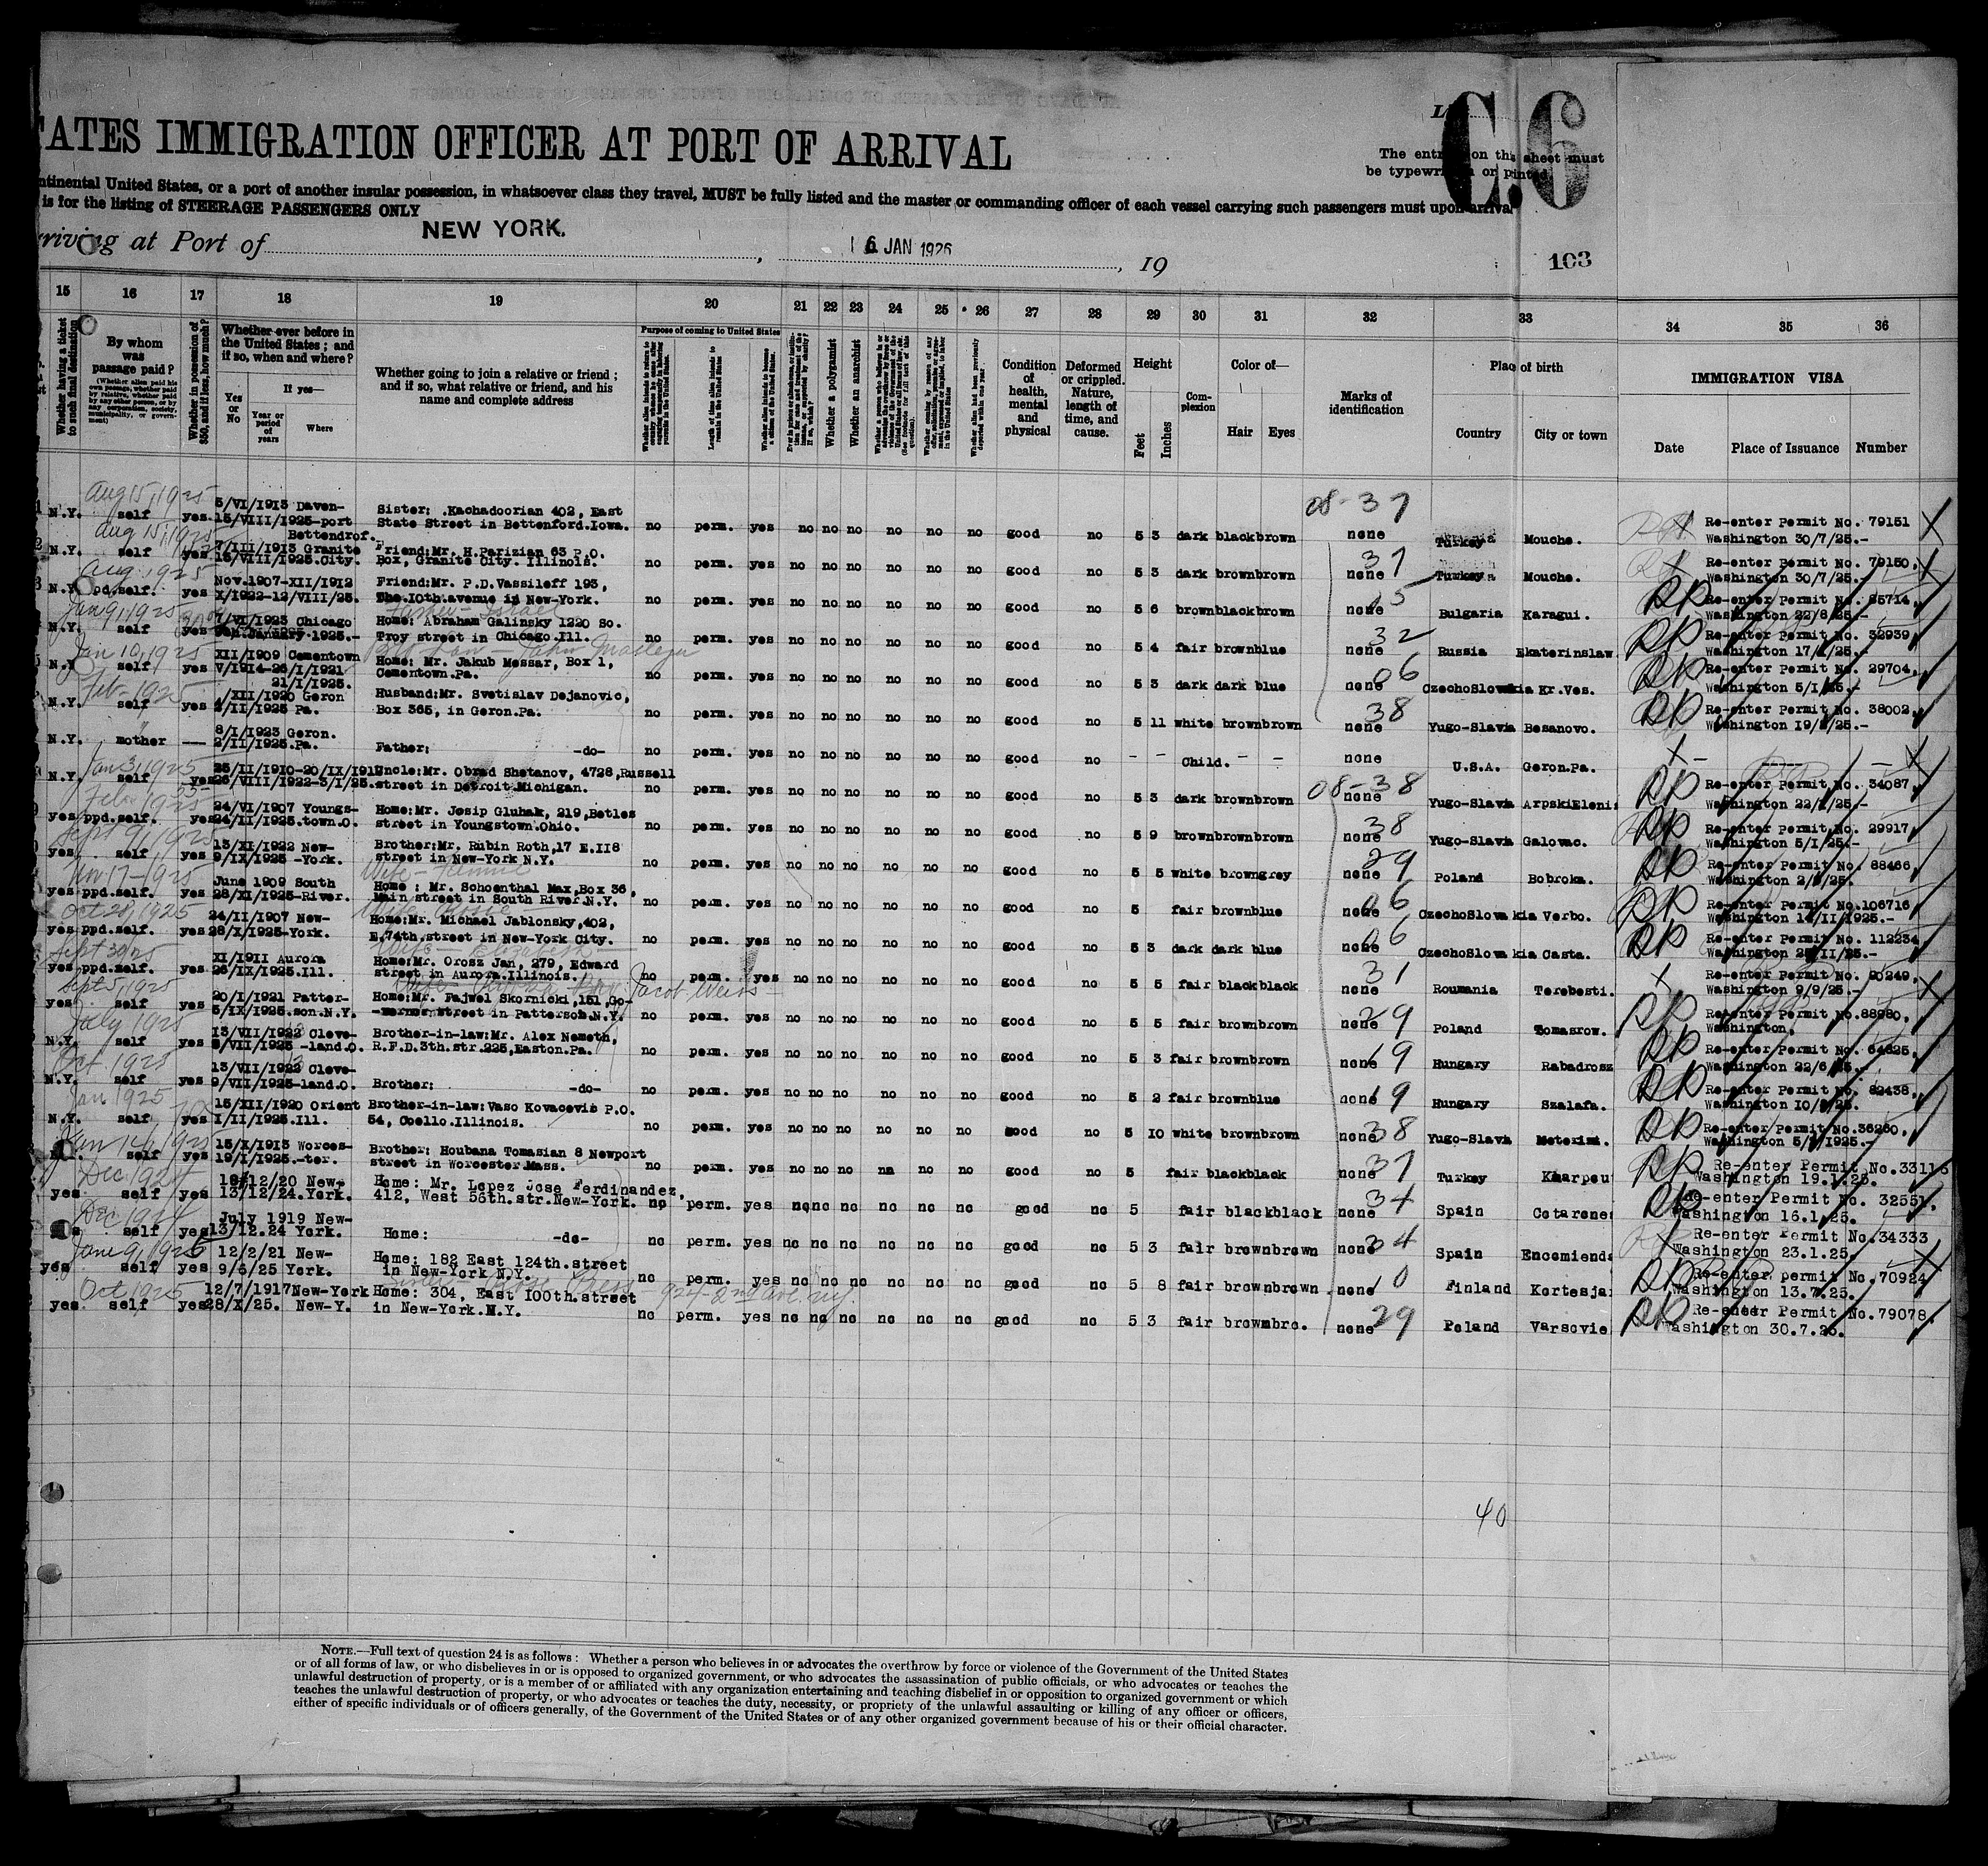 C.6
TATES IMMIGRATION OFFICER AT PORT OF ARRIVAL
The entries on this sheet must
be typewritten or printed.
ntinental United States, or a port of another insular possession, in whatsoever class they travel, MUST be fully listed and the master or commanding officer of each vessel carrying such passengers must upon arrival
is for the listing of STEERAGE PASSENGERS ONLY
rriving at Port of NEW YORK. , 16 JAN 1926 , 19
103
15 16 17 18 19 20 21 22 23 24 25 26 27 28 29 30 31 32 33 34 35 36
Whether having a ticket to such final destination
By whom was passage paid?
(Whether alien paid his own passage, whether paid by relative, whether paid by any other person, or by any corporation, society, municipality, or government)
Whether in possession of $50, and if less, how much?
Whether ever before in the United States; and if so, when and where?
Yes or No
If yes—
Year or period of years
Where
Whether going to join a relative or friend; and if so, what relative or friend, and his name and complete address
Purpose of coming to United States
Length of time alien intends to remain in the United States
Whether alien intends to become a citizen of the United States
Whether a polygamist
Whether an anarchist
Condition of health, mental and physical
Deformed or crippled. Nature, length of time, and cause.
Height
Feet
Inches
Complexion
Color of—
Hair
Eyes
Marks of identification
Place of birth
Country
City or town
IMMIGRATION VISA
Date
Place of Issuance
Number
Aug 15, 1925
08-37
N.Y. self yes 5/VI/1913 Daven- Sister: Kachadoorian 402, East no perm. yes no no no no no no good no 5 3 dark black brown none Turkey Mouche. Re-enter Permit No. 79151
15/VIII/1925-port State Street in Bettenford.Iowa. Washington 30/7/25.-
Bettendrof.
Aug 15, 1925
N.Y. self yes 7/III/1913 Granite Friend:Mr. H.Parizian 63 P.O. no perm. yes no no no no no no good no 5 3 dark brown brown none 37 Turkey Mouche. Re-enter Permit No. 79150.
15/VIII/1925.City. Box, Granite City. Illinois. Washington 30/7/25.-
Aug. 1925
N.Y. ppd.self. yes Nov.1907-XII/1912 Friend:Mr. P.D.Vassileff 193, no perm. yes no no no no no no good no 5 6 brown black brown none Bulgaria Karagui. Re-enter Permit No. 85714.
X/1922-12/VIII/25. The 10th.avenue in New-York. Washington 22/8/25.-
Jan 9, 1925 Father - Israel
N.Y. self yes 7/VI/1923 Chicago Home: Abraham Galinsky 1220 So. no perm. yes no no no no no no good no 5 4 fair brown blue none 32 Russia Ekaterinslaw. Re-enter Permit No. 32939
January 1925.- Troy street in Chicago.Ill. Washington 17/1/25.-
Jan 10, 1925
N.Y. self yes XII/1909 Cementown Home: Mr. Jakub Messar, Box 1, no perm. yes no no no no no no good no 5 3 dark dark blue none 06 CzechoSlovakia Kr.Ves. Re-enter Permit No. 29704.
V/1914-26/I/1921 Cementown.Pa. Washington 5/I/25.-
21/I/1925.
Feb 1925
N.Y. self yes 4/XII/1920 Geron Husband:Mr. Svetislav Dejanovic, no perm. yes no no no no no no good no 5 11 white brown brown none 38 Yugo-Slavia Besanovo. Re-enter Permit No. 38002.
2/II/1925 Pa. Box 365, in Geron.Pa. Washington 19/2/25.-
N.Y. mother — 8/I/1923 Geron. Father: -do- no perm. yes no no no no no no good no - - Child. - - none U.S.A. Geron.Pa.
2/II/1925.Pa.
Jan 3, 1925
08-38
N.Y. self yes 25/II/1910-20/IX/191 Uncle:Mr. Obrad Shetanov, 4728,Russell no perm. yes no no no no no no good no 5 3 dark brown brown none Yugo-Slavia ArpskiEleni Re-enter Permit No. 34087.
26/VIII/1922-3/I/25. street in Detroit.Michigan. Washington 22/1/25.-
Feb. 1925
yes ppd.self. yes 24/VI/1907 Youngs- Home:Mr. Josip Gluhak, 219,Betles no perm. yes no no no no no no good no 5 9 brown brown brown none 38 Yugo-Slavia Galovac. Re-enter Permit No. 29917
24/II/1925.town.O. street in Youngstown.Ohio. Washington 5/1/25.-
Sept 9, 1925
yes self yes 13/XI/1922 New- Brother:Mr. Rubin Roth,17 E.118 no perm. yes no no no no no no good no 5 5 white brown grey none 29 Poland Bobroka. Re-enter Permit No. 88466
9/IX/1925 -York. street in New-York N.Y.
Nov 17 - 1925 Wife - Fannie
yes ppd.self. yes June 1909 South Home : Mr. Schoenthal Max,Box 36, no perm. yes no no no no no no good no 5 fair brown blue none 06 CzechoSlovakia Verbo. Re-enter Permit No.106716
28/XI/1925-River. Main street in South River.N.Y. Washington 14/II/1925.-
Oct 28, 1925
yes ppd.self. yes 24/II/1907 New- Home:Mr. Michael Jablonsky,402, no perm. yes no no no no no no good no 5 3 dark dark blue none 06 CzechoSlovakia Casta. Re-enter Permit No. 112234
28/X/1925-York. E.74th.street in New-York City.
yes ppd.self. yes XI/1911 Aurora Home:Mr. Orosz Jan, 279, Edward no perm. yes no no no no no no good no 5 5 fair black black none 31 Roumania Terebesti. Re-enter Permit No. 90249.
26/IX/1925.Ill. street in Aurora.Illinois. Washington 9/9/25.-
Sept 5, 1925 Jacob Weiss
yes self yes 20/I/1921 Patter- Home:Mr. Fajwel Skornicki,151,Go- no perm. yes no no no no no no good no 5 5 fair brown brown none 29 Poland Tomasrow. Re-enter Permit No.88980.
5/IX/1925.son.N.Y. -vernor street in Patterson.N.Y. Washington.
July 1925
N.Y. self yes 13/VII/1923 Cleve- Brother-in-law:Mr. Alex Nemeth, no perm. yes no no no no no no good no 5 3 fair brown brown none 19 Hungary Rabadrosz Re-enter Permit No. 64625.
/VII/1925 -land.O. R.F.D.3th.str.225,Easton.Pa. Washington 22/6/25.-
Oct. 1925
N.Y. self yes 13/VII/1923 Cleve- Brother: -do- no perm. yes no no no no no no good no 5 2 fair brown blue none 19 Hungary Szalafa. Re-enter Permit No. 82438.
9/VII/1925-land.O.
Jan 1925
N.Y. self yes 15/XII/1920 Orient Brother-in-law:Vaso Kovacevis P.O. no perm. yes no no no no no no good no 5 10 white brown brown none 38 Yugo-Slavia Meterizi. Re-enter Permit No.36260.
1/II/1925.Ill. 54, Coello.Illinois.
self yes 15/X/1913 Worces- Brother: Houbana Tomasian 8 Newport no perm. yes no no no na no no good no 5 fair black black none 37 Turkey Kharpou Re-enter Permit No.33116
19/I/1925.-ter. street in Worcester.Mass. Washington 19.1.25.
Dec 1924
yes self yes 18/12/20 New- Home: Mr. Lopez Jose Ferdinandez, no perm. yes no no no no no no good no 5 fair black black none 34 Spain Cotarenes Re-enter Permit No. 32551.
13/12/24.York. 412, West 56th.str.New-York. Washington 16.1.25.
Dec 1924
self yes July 1919 New- Home: -do- no perm. yes no no no no no no good no 5 3 fair brown brown none 34 Spain Encomienda Re-enter Permit No.34333
13/12.24 York. Washington 23.1.25.
June 9, 1925
yes self yes 12/2/21 New- Home: 182 East 124th.street no perm. yes no no no no no no good no 5 8 fair brown brown none 10 Finland Kortesja Re-enter permit No.70924
9/6/25 York. in New-York N.Y. Washington 13.7.25.
Oct 1925 924-2nd Ave. NY.
yes self yes 12/7/1917 New-York Home: 304, East 100th.street no perm. yes no no no no no no good no 5 3 fair brown bro. none 29 Poland Varsovie Re-enter Permit No.79078.
28/X/25. New-Y. in New-York.N.Y. Washington 30.7.25.
40
NOTE.—Full text of question 24 is as follows: Whether a person who believes in or advocates the overthrow by force or violence of the Government of the United States
or of all forms of law, or who disbelieves in or is opposed to organized government, or who advocates the assassination of public officials, or who advocates or teaches the
unlawful destruction of property, or is a member of or affiliated with any organization entertaining and teaching disbelief in or opposition to organized government or which
teaches the unlawful destruction of property, or who advocates or teaches the duty, necessity, or propriety of the unlawful assaulting or killing of any officer or officers,
either of specific individuals or of officers generally, of the Government of the United States or of any other organized government because of his or their official character.